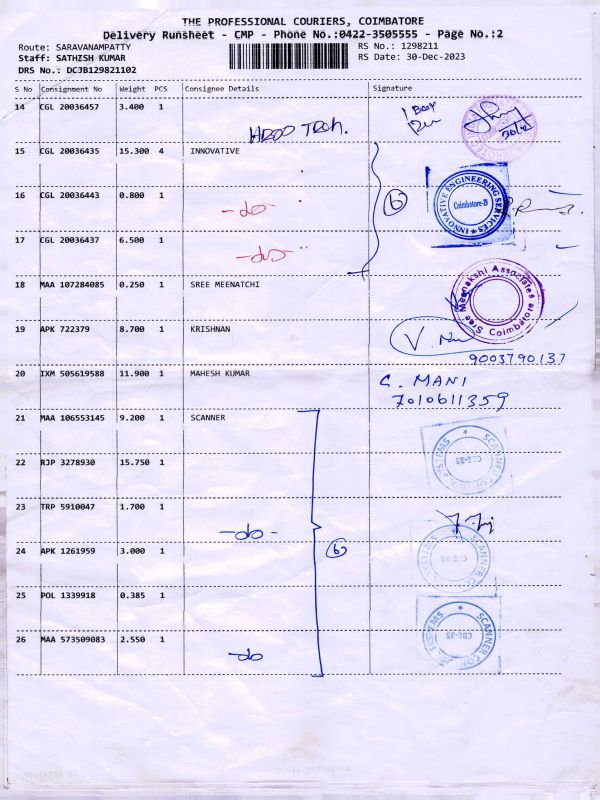 THE PROFESSIONAL COURIERS, COIMBATORE
Delivery Runsheet - CMP - Phone No.:0422-3505555 - Page No.:2
Route: SARAVANAMPATTY RS No.: 1298211
Staff: SATHISH KUMAR RS Date: 30-Dec-2023
DRS No.: DCJB129821102
S No Consignment No Weight PCS Consignee Details Signature
14 CGL 20036457 3.400 1
15 CGL 20036435 15.300 4 INNOVATIVE
INNOVATIVE ENGINEERING SERVICES
Coimbatore-29
16 CGL 20036443 0.800 1 -do- 6
17 CGL 20036437 6.500 1 -do-
18 MAA 107284085 0.250 1 SREE MEENATCHI
Sree Meenakshi Associates
Coimbatore
19 APK 722379 8.700 1 KRISHNAN
9003790137
20 IXM 505619588 11.900 1 MAHESH KUMAR C. MANI
7010611359
21 MAA 106553145 9.200 1 SCANNER
22 RJP 3278930 15.750 1
23 TRP 5910047 1.700 1 -do-
24 APK 1261959 3.000 1 6
25 POL 1339918 0.385 1
26 MAA 573509083 2.550 1 -do